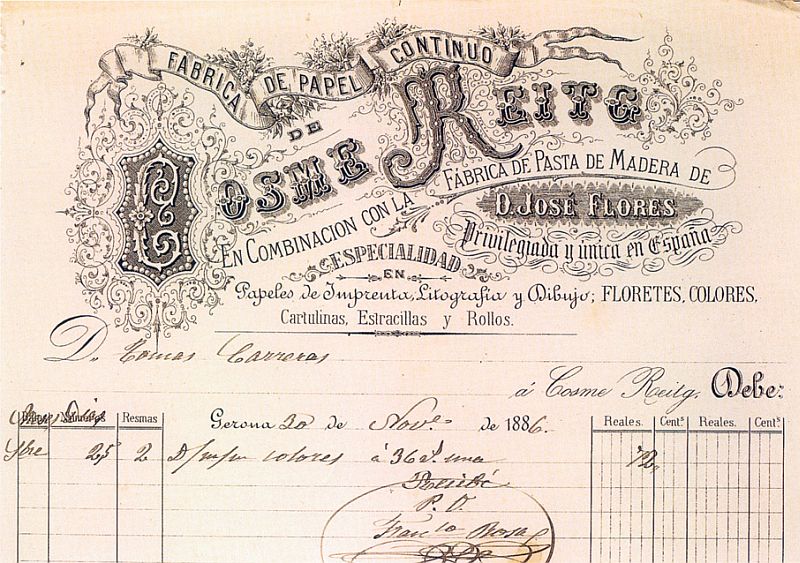 FÁBRICA DE PAPEL CONTINUO
DE
COSME REITG
EN COMBINACION CON LA FÁBRICA DE PASTA DE MADERA DE
D. JOSÉ FLORES
Privilegiada y única en España
ESPECIALIDAD
EN
Papeles de Imprenta, Litografía y Dibujo; FLORETES, COLORES,
Cartulinas, Estracillas y Rollos.
D. Tomas Carreras
á Cosme Reitg. Debe:
Resmas Gerona 20 de Nov.e de 1886. Reales. Cents Reales. Cents
25 2 colores á 36 una 72
Recibí
P. O.